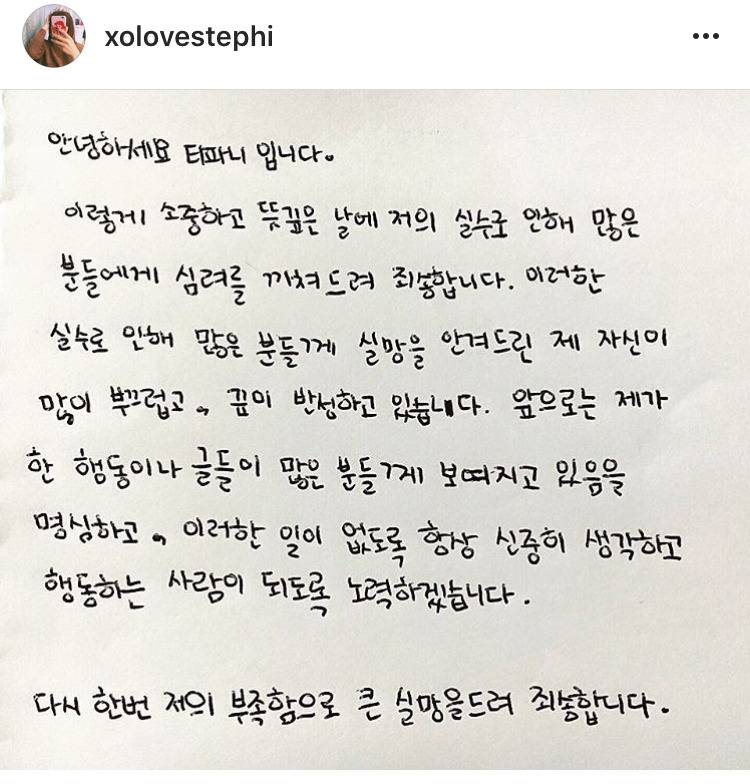 xolovestephi
안녕하세요 티파니 입니다.
이렇게 소중하고 뜻깊은 날에 저의 실수로 인해 많은
분들에게 심려를 끼쳐드려 죄송합니다. 이러한
실수로 인해 많은 분들께 실망을 안겨드린 제 자신이
많이 부끄럽고, 깊이 반성하고 있습니다. 앞으로는 제가
한 행동이나 글들이 많은 분들께 보여지고 있음을
명심하고, 이러한 일이 없도록 항상 신중히 생각하고
행동하는 사람이 되도록 노력하겠습니다.
다시 한번 저의 부족함으로 큰 실망을드려 죄송합니다.